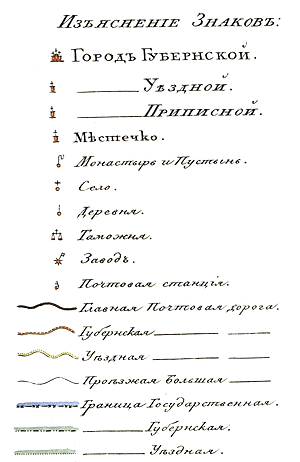 Изъясненіе Знаковъ:
Городъ Губернской.
Уѣздной.
Приписной.
Мѣстечко.
Монастырь и Пустынь.
Село.
Деревня.
Таможня.
Заводъ.
Почтовая станція.
Главная Почтовая дорога.
Губернская
Уѣздная
Проѣзжая большая
Граница Государственная.
Губернская.
Уѣздная.